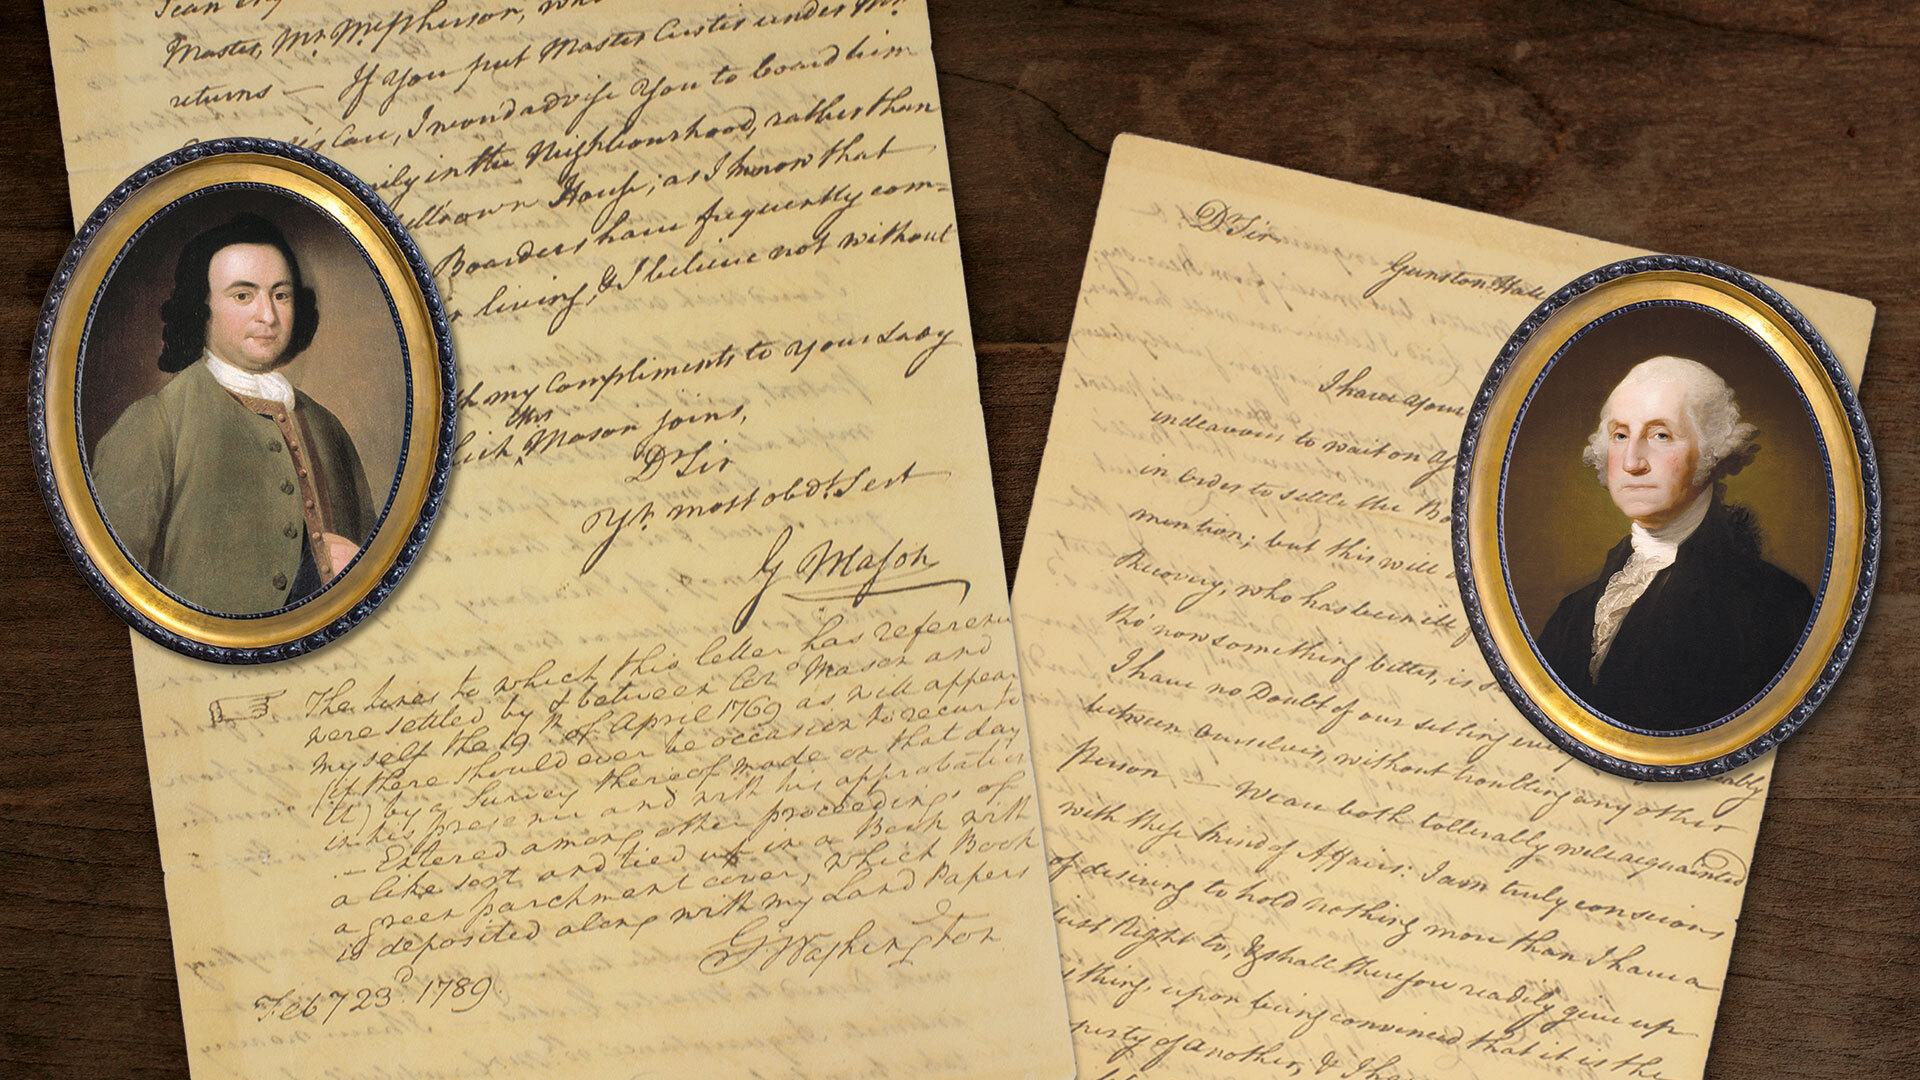 Master, Mr. McPherson, wh
returns — If you put Master Custis under Mr.
's Care, I woud advise You to board him
ily in the Neighbourhood, rather than
own House; as I know that
Boarders have frequently com=
living, & I believe not without
h my Compliments to Your Lady
which Mrs Mason joins,
Dr Sir
Yr. most obdt. Sert
G Mason
The lines to which this letter has referenc
were settled by & between Colo. Mason and
myself the 19th. of April 1769 as will appear
(if there should ever be occasion to recur to
it) by a Survey thereof made on that day
in his presence and with his approbation
— Entered among other proceedings of
a like sort and tied up in a Book with
a green parchment cover, which Book
is deposited along with my Land Papers
G Washington
Feby 23d. 1789.
Dr Sir
Gunston Hall
I have Your
indeavour to wait on Y
in order to settle the Bo
mention; but this will
Recovery, who has been ill
tho' now something better, is
I have no Doubt of our settling eve ably
between Ourselves, without troubling any other
Person — We are both tollerably well acquainted
with these kind of Affairs: I am truly conscious
of desiring to hold nothing more than I have a
just Right to, & shall therefore readily give up
thing, upon being convinced that it is the
perty of another; & I ha